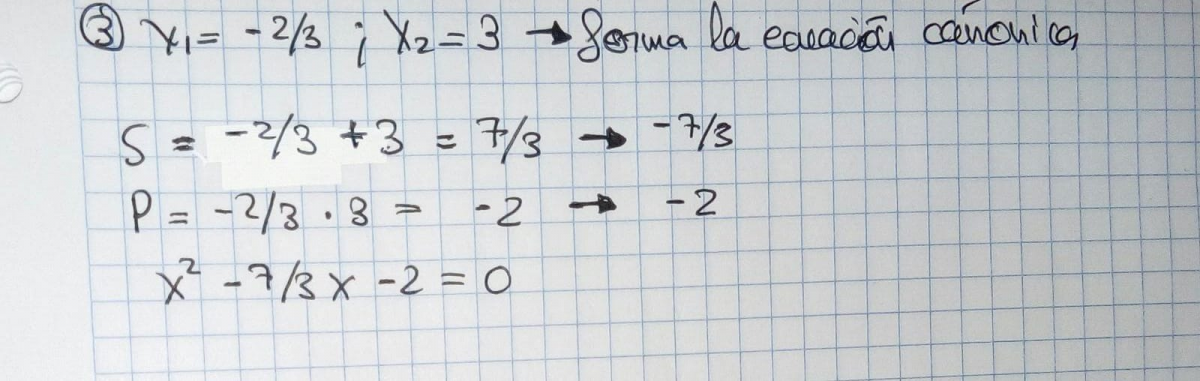 ③ X₁ = -2/3 ; X₂ = 3 → forma la ecuación canónica
S = -2/3 + 3 = 7/3 → -7/3
P = -2/3 · 3 = -2 → -2
x² - 7/3 x - 2 = 0